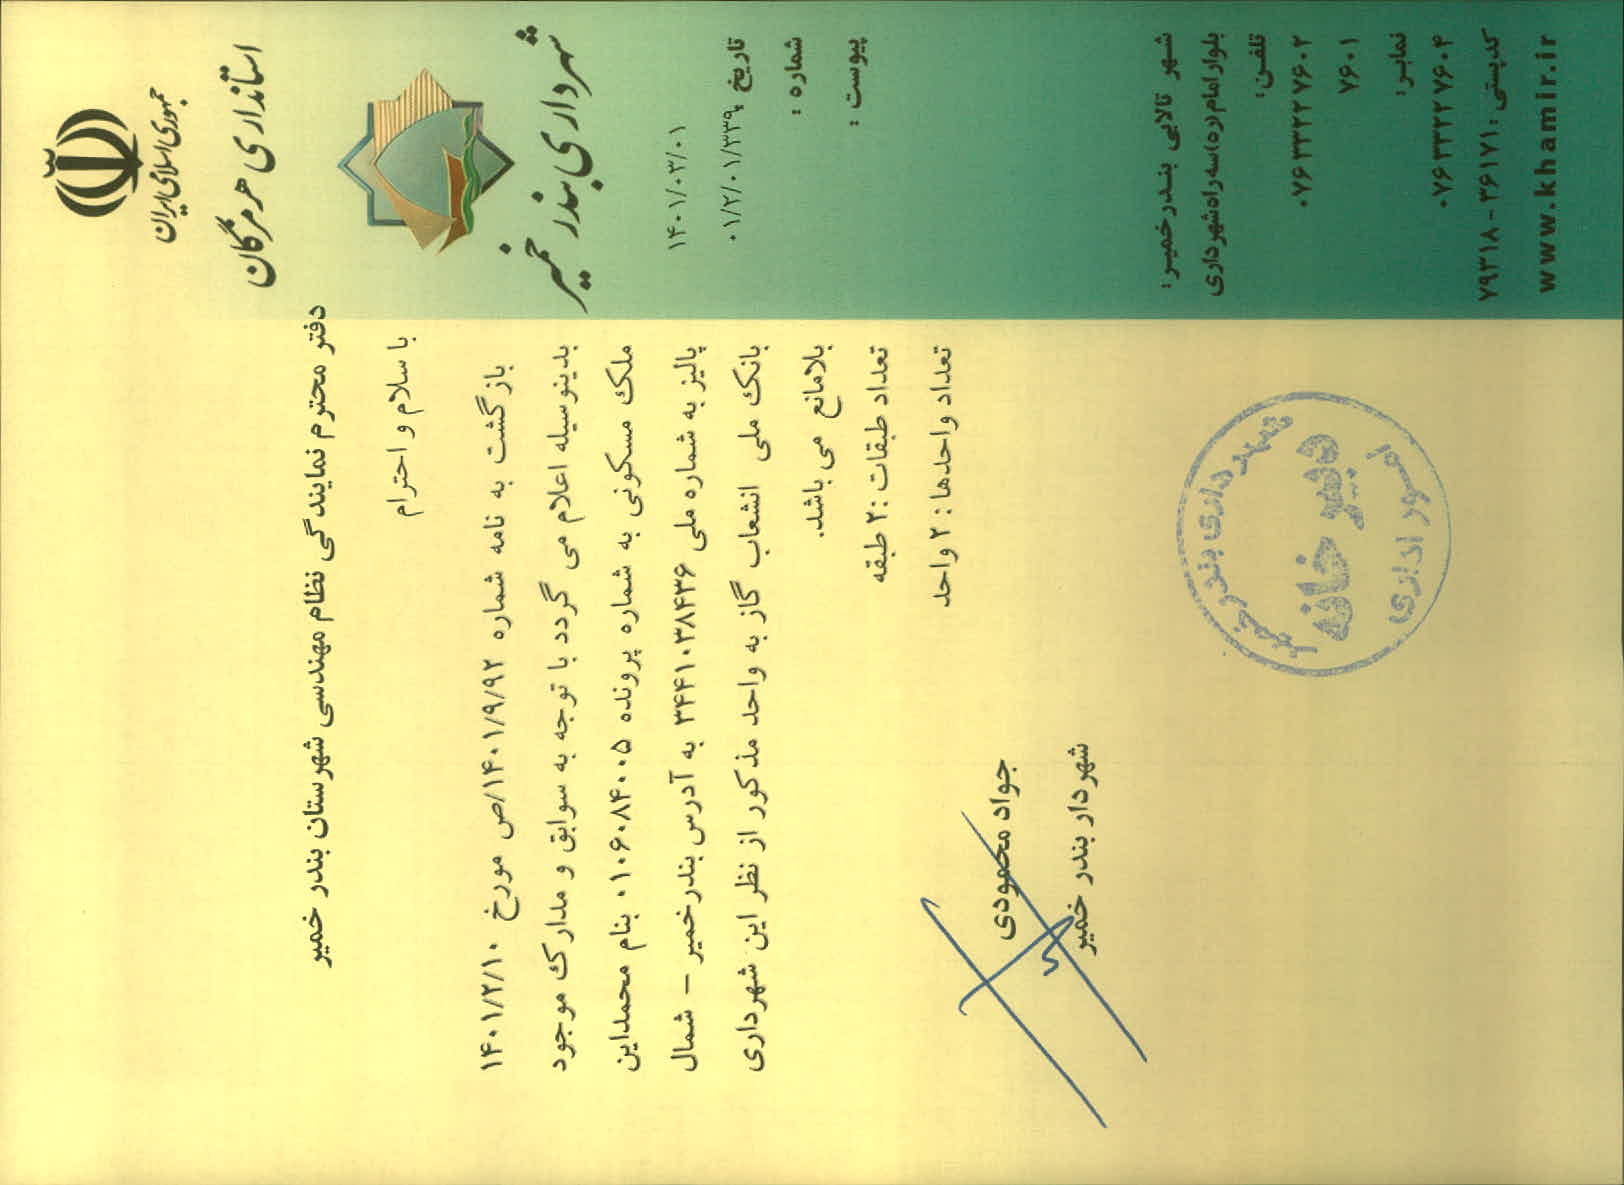 جمهوری اسلامی ایران
استانداری هرمزگان
شهرداری بندر خمیر
تاریخ: ۱۴۰۱/۰۳/۰۱
شماره: ۰۱/۲/۰۱/۳۳۹
پیوست:
دفتر محترم نمایندگی نظام مهندسی شهرستان بندر خمیر
با سلام و احترام
بازگشت به نامه شماره ۱۴۰۱/۹/۹۲/ص مورخ ۱۴۰۱/۲/۱۰
بدینوسیله اعلام می گردد با توجه به سوابق و مدارک موجود
ملک مسکونی به شماره پرونده ۰۱۰۶۰۸۴۰۰۵ بنام محمداین
پالیز به شماره ملی ۳۴۴۱۰۳۸۴۳۶ به آدرس بندرخمیر – شمال
بانک ملی انشعاب گاز به واحد مذکور از نظر این شهرداری
بلامانع می باشد.
تعداد طبقات :۲ طبقه
تعداد واحدها : ۲ واحد
جواد محمودی
شهردار بندر خمیر
شهرداری بندر خمیر
دبیرخانه
امور اداری
شهر تالابی بندرخمیر:
بلوار امام(ره)سه راه شهرداری
تلفن:
۰۷۶۳۳۲۲۷۶۰۲
۷۶۰۱
نمابر:
۰۷۶۳۳۲۲۷۶۰۴
کدپستی: ۳۶۱۷۱ - ۷۹۳۱۸
www.khamir.ir